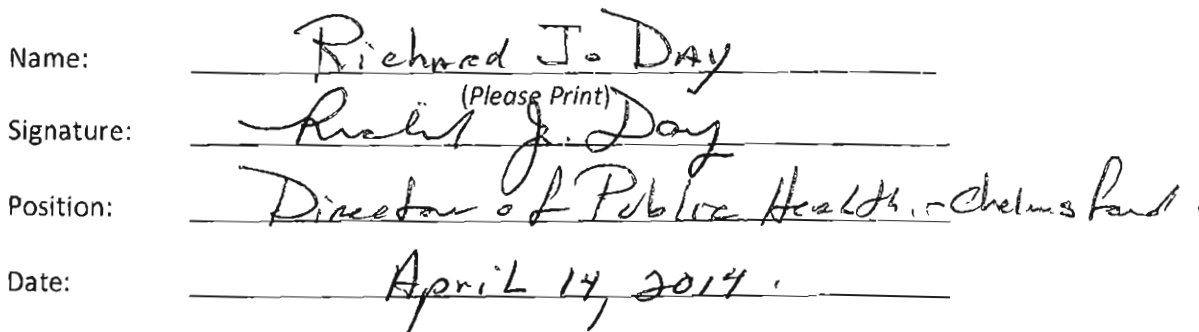 Name: Richard J. Day
(Please Print)
Signature: Richard J. Day
Position: Director of Public Health - Chelmsford.
Date: April 14, 2014.